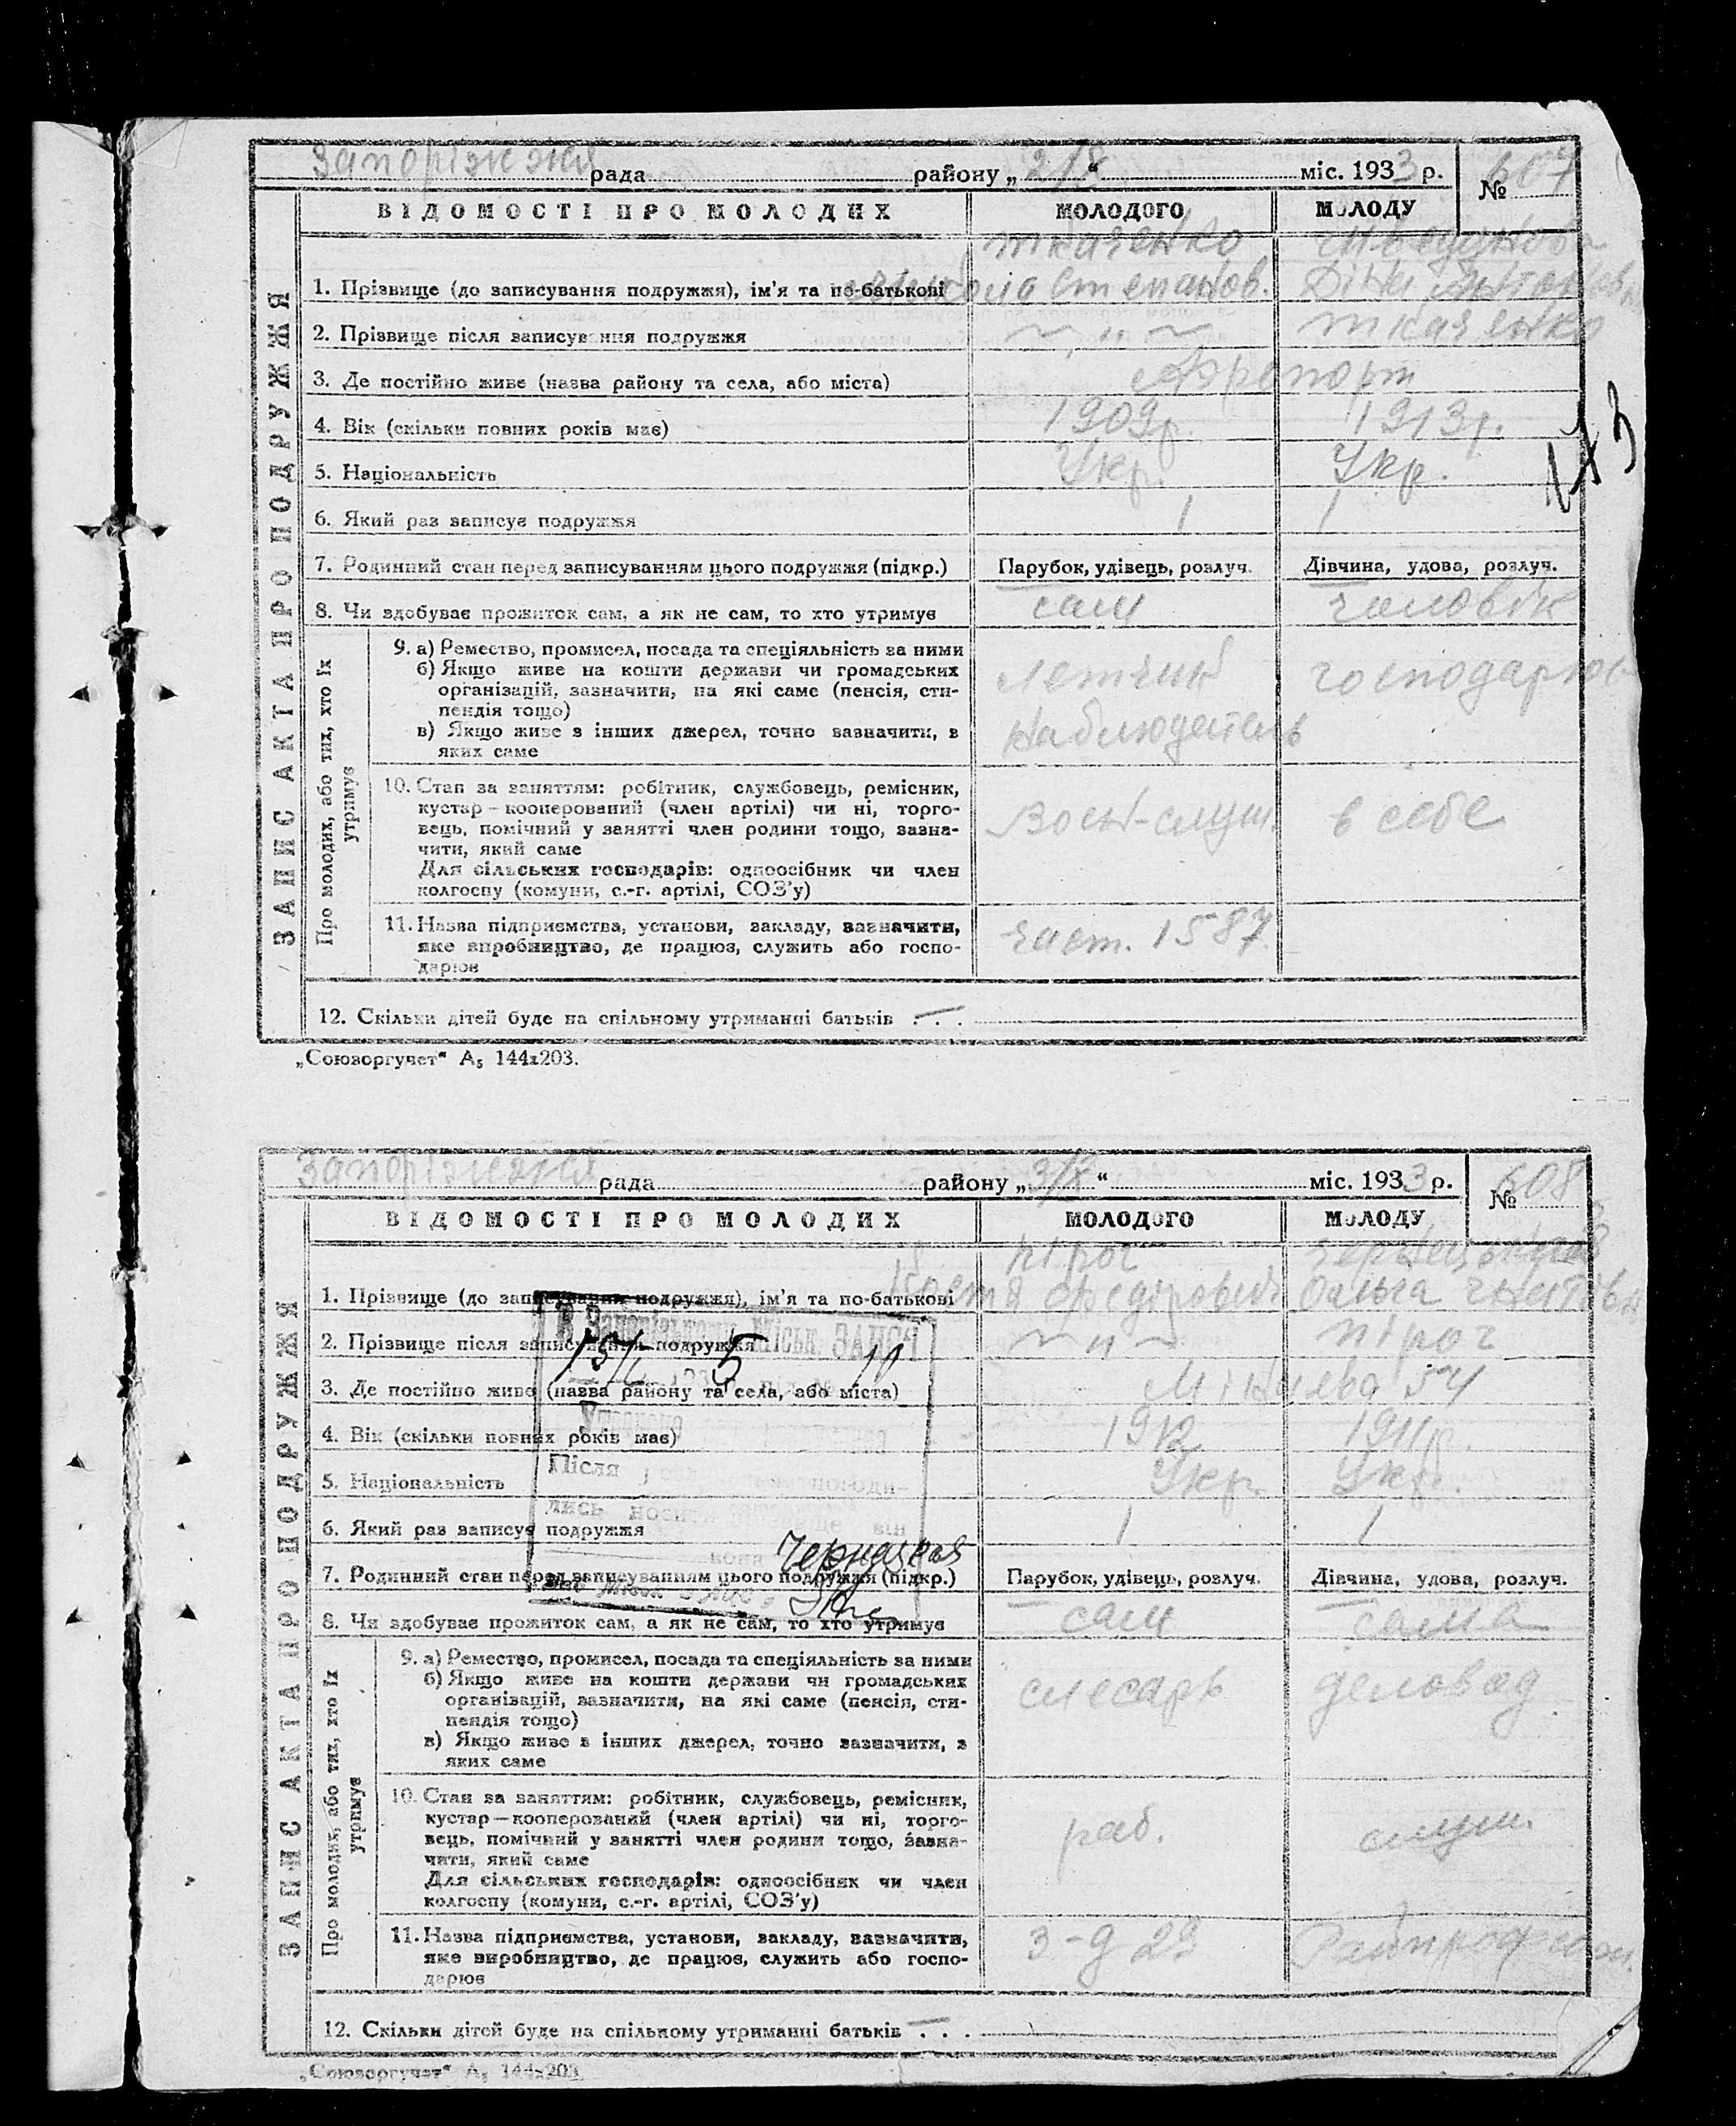 Запоріжжя рада району „2/X“ міс. 1933 р. № 607
ВІДОМОСТІ ПРО МОЛОДИХ МОЛОДОГО МОЛОДУ
ЗАПИС АКТА ПРО ПОДРУЖЖЯ
Ткаченко
1. Прізвище (до записування подружжя), ім'я та по-батькові Степанов.
2. Прізвище після записування подружжя — „ — Ткаченко
3. Де постійно живе (назва району та села, або міста) Аэропорт
4. Вік (скільки повних років має) 1909р. 1913р.
5. Національність Укр. Укр.
6. Який раз записує подружжя 1 1
7. Родинний стан перед записуванням цього подружжя (підкр.) Парубок, удівець, розлуч. Дівчина, удова, розлуч.
8. Чи здобуває прожиток сам, а як не сам, то хто утримує сам чоловік
Про молодих, або тих, хто їх утримує
9. а) Ремество, промисел, посада та спеціяльність за ними
б) Якщо живе на кошти держави чи громадських
організацій, зазначити, на які саме (пенсія, сти-
пендія тощо)
в) Якщо живе з інших джерел, точно зазначити, з
яких саме
Летчик
Наблюдатель
10. Стан за заняттям: робітник, службовець, ремісник,
кустар—кооперований (член артілі) чи ні, торго-
вець, помічний у занятті член родини тощо, зазна-
чити, який саме
Для сільських господарів: одноосібник чи член
колгоспу (комуни, с.-г. артілі, СОЗ'у)
в себе
11. Назва підприємства, установи, закладу, зазначити,
яке виробництво, де працює, служить або госпо-
дарює
част. 1587
12. Скільки дітей буде на спільному утриманні батьків . . . —
„Союзоргучет“ А₅ 144х203.
Запоріжжя рада району „3/X“ міс. 1933 р. № 608
ВІДОМОСТІ ПРО МОЛОДИХ МОЛОДОГО МОЛОДУ
ЗАПИС АКТА ПРО ПОДРУЖЖЯ
Пірог
1. Прізвище (до записування подружжя), ім'я та по-батькові Федірович Ольга
2. Прізвище після записування подружжя — „ — Пірог
3. Де постійно живе (назва району та села, або міста) 54
4. Вік (скільки повних років має) 1912 1911р.
5. Національність Укр. Укр.
6. Який раз записує подружжя 1 1
7. Родинний стан перед записуванням цього подружжя (підкр.) Парубок, удівець, розлуч. Дівчина, удова, розлуч.
8. Чи здобуває прожиток сам, а як не сам, то хто утримує сам сама
В Запорізькому Міськ. ЗАГСі
Після
Про молодих, або тих, хто їх утримує
9. а) Ремество, промисел, посада та спеціяльність за ними
б) Якщо живе на кошти держави чи громадських
організацій, зазначити, на які саме (пенсія, сти-
пендія тощо)
в) Якщо живе з інших джерел, точно зазначити, з
яких саме
слесарь деловод
10. Стан за заняттям: робітник, службовець, ремісник,
кустар—кооперований (член артілі) чи ні, торго-
вець, помічний у занятті член родини тощо, зазна-
чити, який саме
Для сільських господарів: одноосібник чи член
колгоспу (комуни, с.-г. артілі, СОЗ'у)
раб.
11. Назва підприємства, установи, закладу, зазначити,
яке виробництво, де працює, служить або госпо-
дарює
з-д 29
12. Скільки дітей буде на спільному утриманні батьків . . . —
„Союзоргучет“ А₅ 144х203.